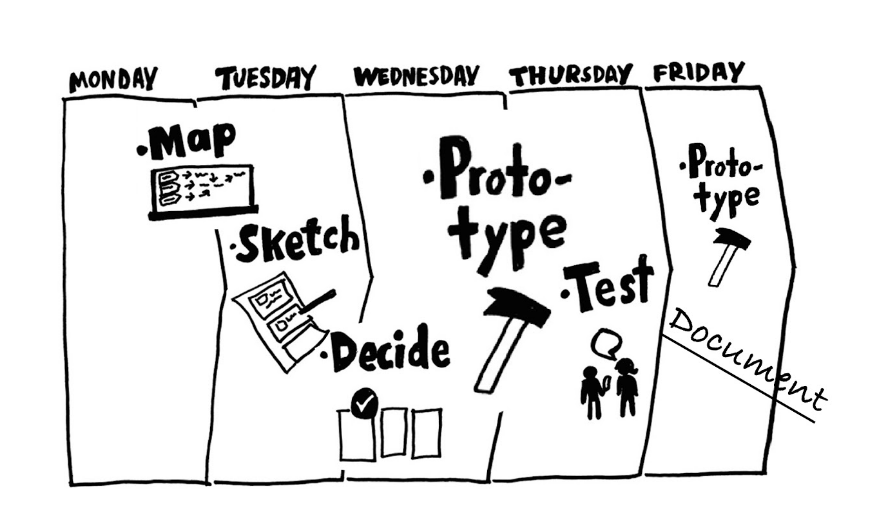 MONDAY TUESDAY WEDNESDAY THURSDAY FRIDAY
·Map
·Sketch
·Decide
·Proto-
type
·Test
·Proto-
type
Document